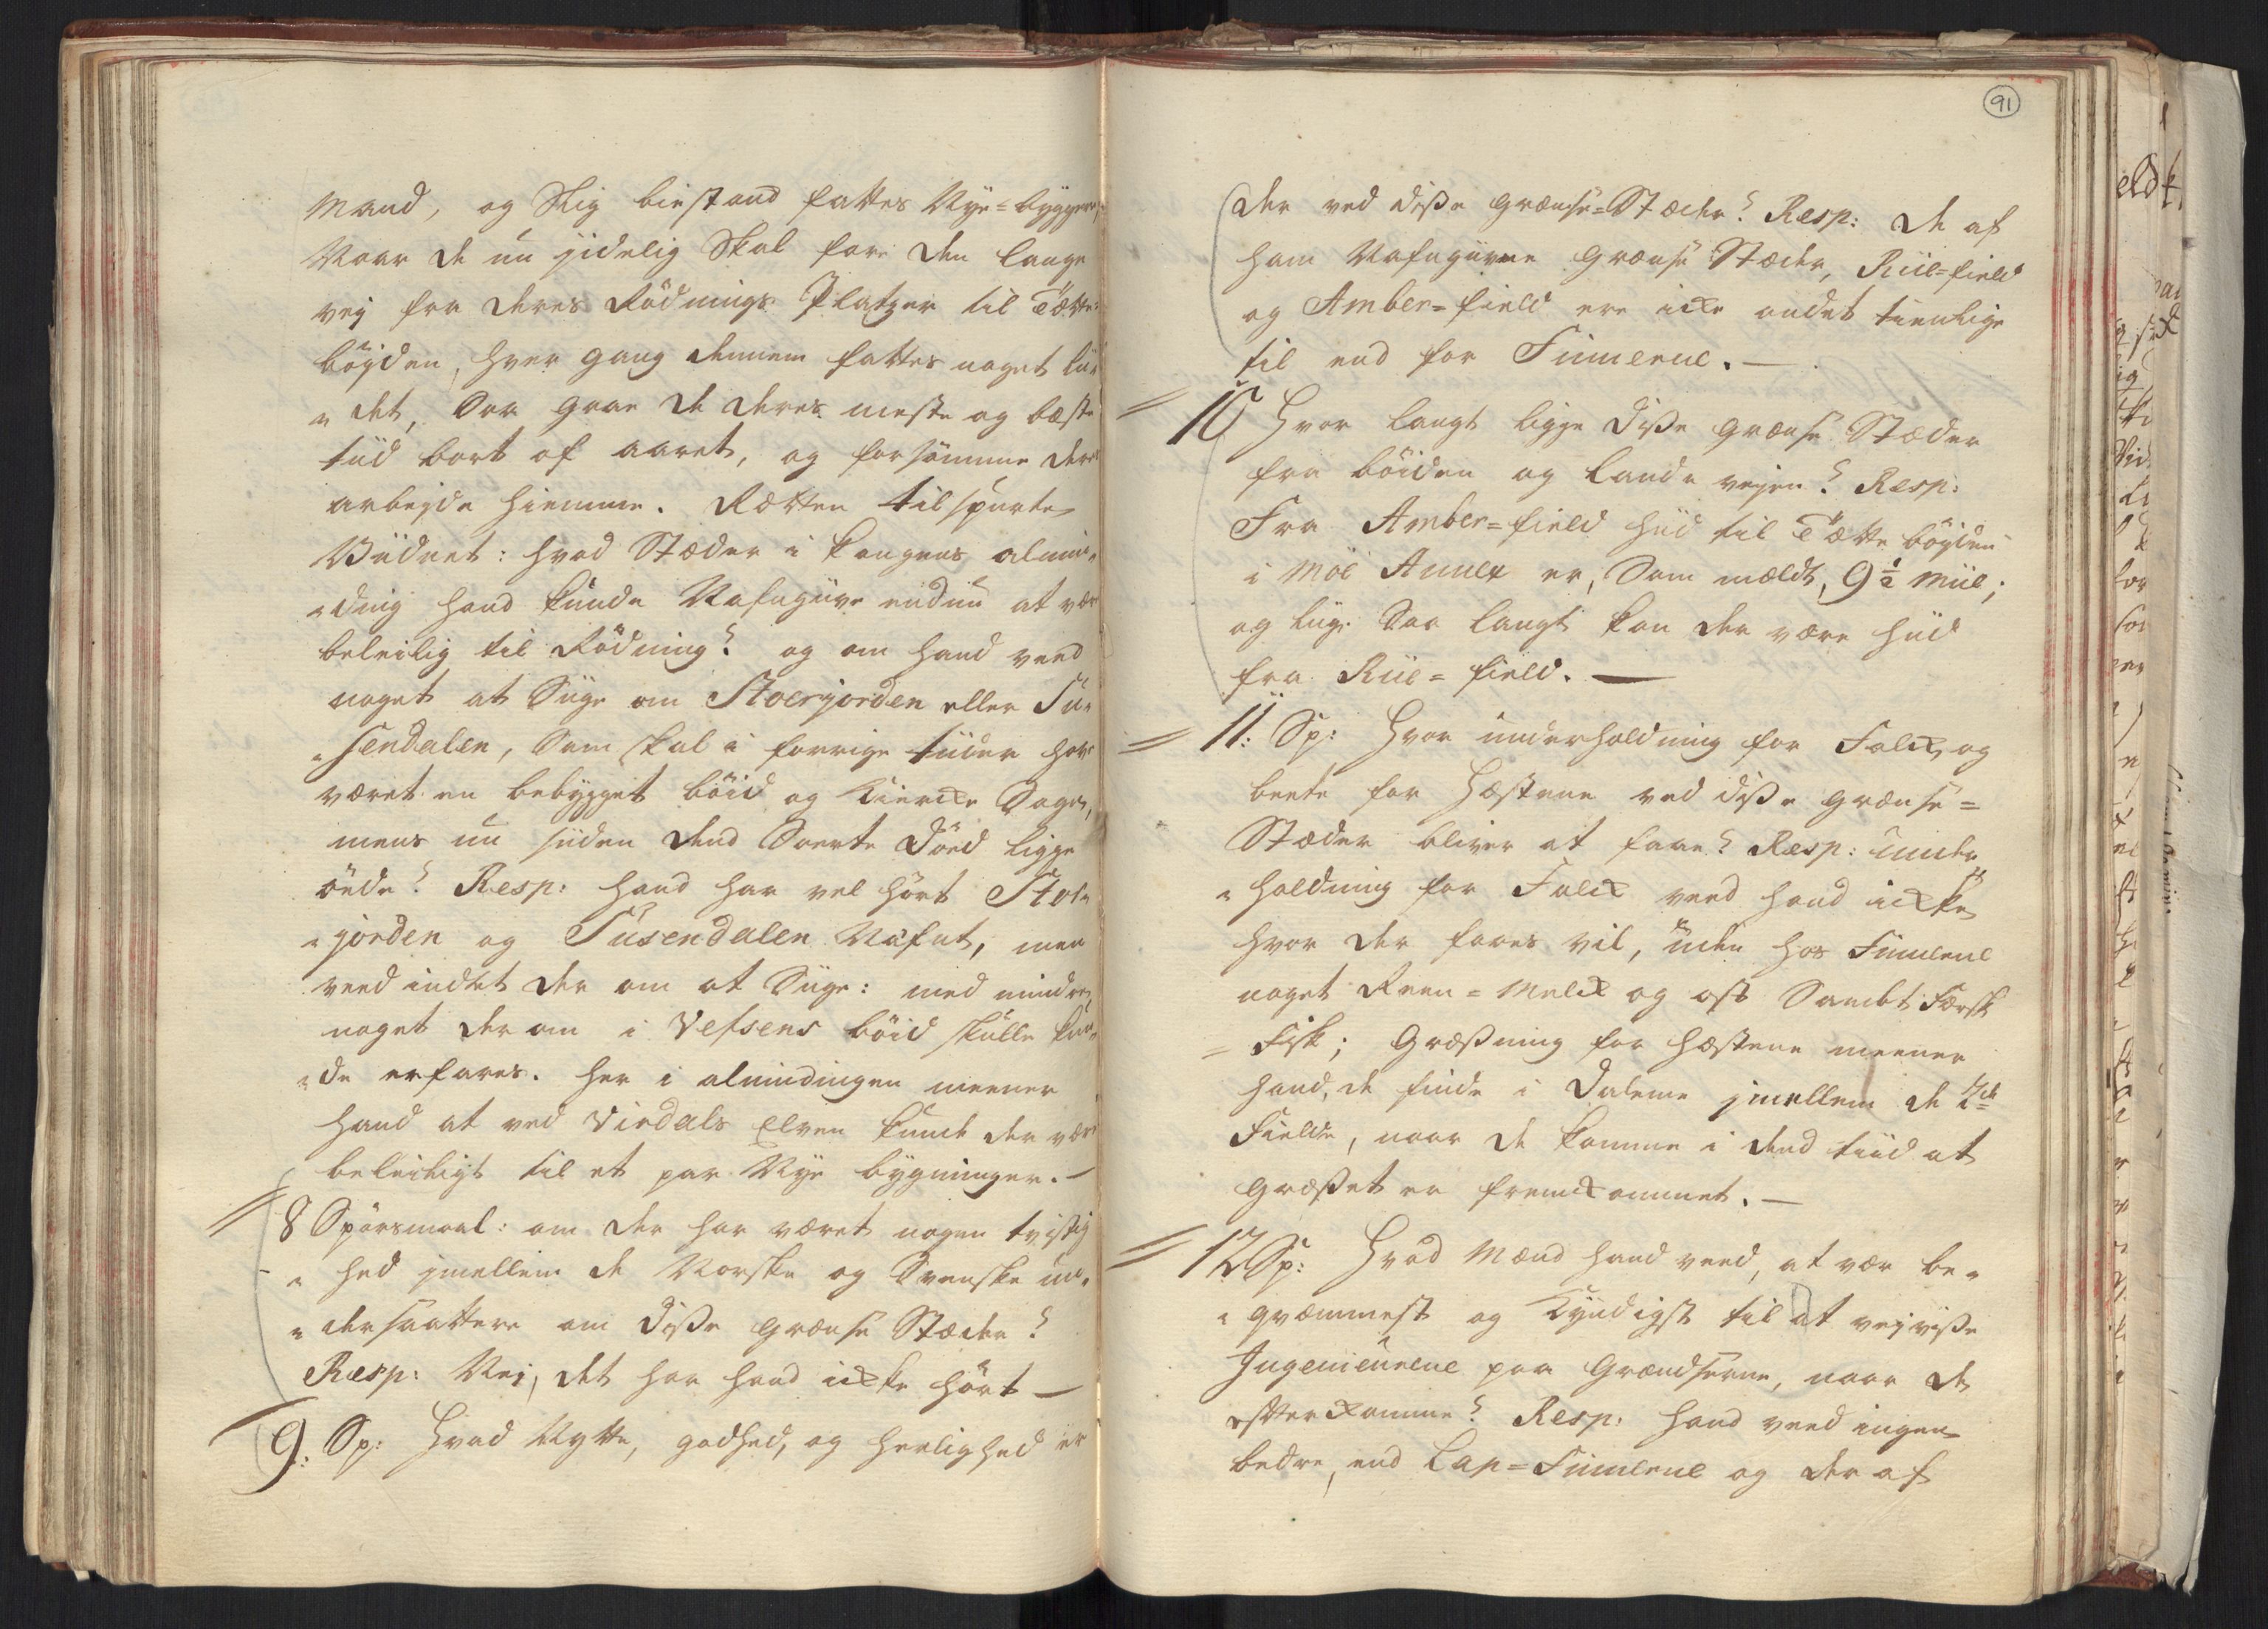 Mand, og Slig biestand fattes Nye-byggerne
Naar de nu jidelig Skal fare den lange
vej fra deres Rødnings Platzer til Tætte-
böyden, hver gang dennem fattes noget lii-
"det, Saa gaar de deres meste og bæste
tiid bort af aaret, og forsømme deres
arbejde hiemme. Rætten tilspurte
Viidnet: hvad Stæder i kongens almin-
"ding hand kunde Nafngiive endnu at være
beleilig til Rödning? og om hand veed
noget at Siige om Stoerjorden eller Su-
"sendalen, Som skal i forrige tiider have
været en bebygget böid og Kiercke Sogn,
mens nu siiden dend Sorte död ligge
öede? Resp: hand har vel hört Stor-
"jorden og Susendalen Nafnt, men
veed indtet der om at Siige: med mindre
noget der om i Vefsens böid skulle kun-
"de erfares. her i almindingen meener
hand at ved Virdals Elven kunde der være
beleiligt til et par Nye bygninger. —
8 Spörsmaal: om der har været nogen tvistig
"hed jmellem de Norske og Svenske un-
"dersaattere om disse grænse Stæder?
Resp: Nei, det har hand icke hört —
9. Sp: Hvad Nytte, godhed, og herlighed er
91
der ved disse grænse-Stæder? Resp: de af
ham Nafngivne grænse Stæder, Riil-field
og Amber-field ere icke andet tienlige
til end for Finnerne. —
10 Hvor langt ligge disse grænse Stæder
fra böiden og lande vejen? Resp:
Fra Amber-field hiid til Tætte böyden
i Möe Annex er, Som mældt, 9½ Miil;
og liige Saa langt kan der være hiid
fra Riil-field. —
11: Sp: Hvor underholdning for Folck og
beete for Hæstene ved disse grænse-
Stæder bliver at faae? Resp: under
"holdning for Folck veed hand icke
hvor der faaes vil, uden hos Finnerne
noget Reen-Melck og ost Sambt Fersk
-Fisk; Græsning for hæstene meener
hand, de finde i Dalene jmellem de 2de
Fielde, naar de komme i dend tiid at
græsset er fremkommet. —
12 Sp: Hvad Mænd hand veed, at vær be-
"qvæmmest og Kyndigst til at vejvisse
Ingenieurene paa Grændserne, naar de
efterkomme? Resp: hand veed ingen
bedre, end Lap-Finnerne og der af